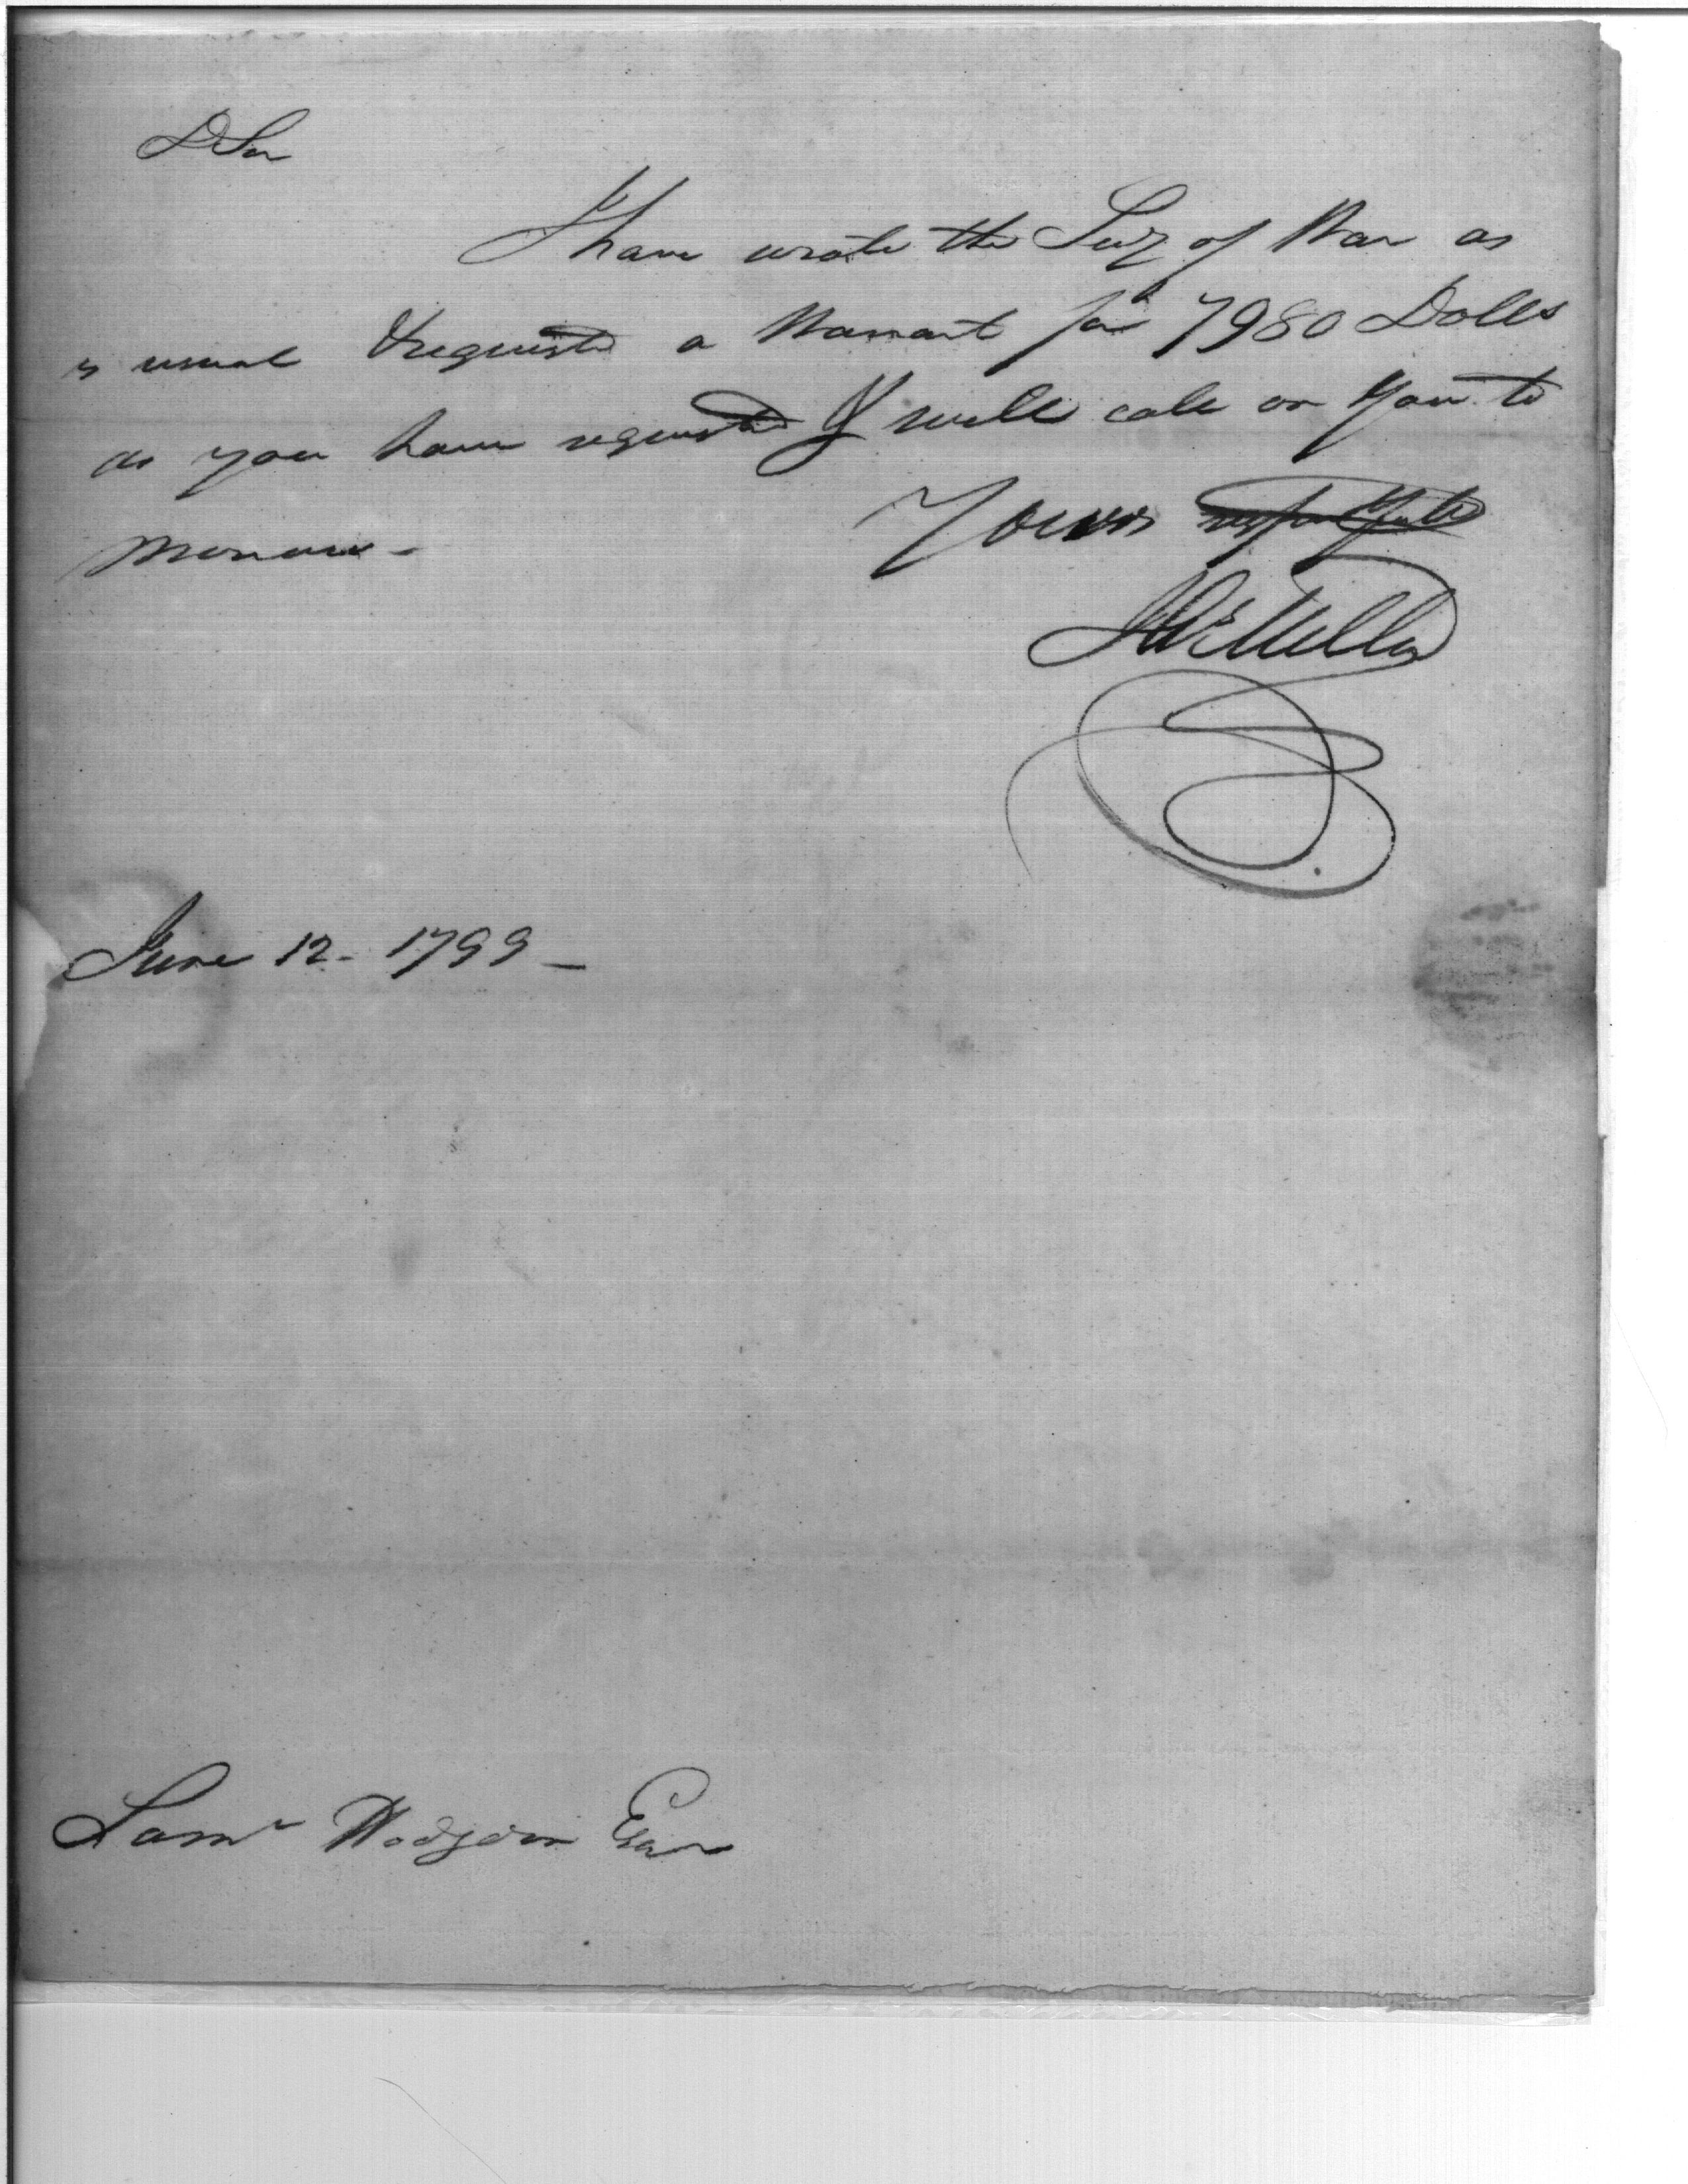 D Sir
I have wrote the Secy of War as
is usual & requested a Warrant for 7980 Dolls
as you have requested I will call on you to
morrow -
Yours respectfully
June 12 - 1799 -
Saml Hodgdon Esqr